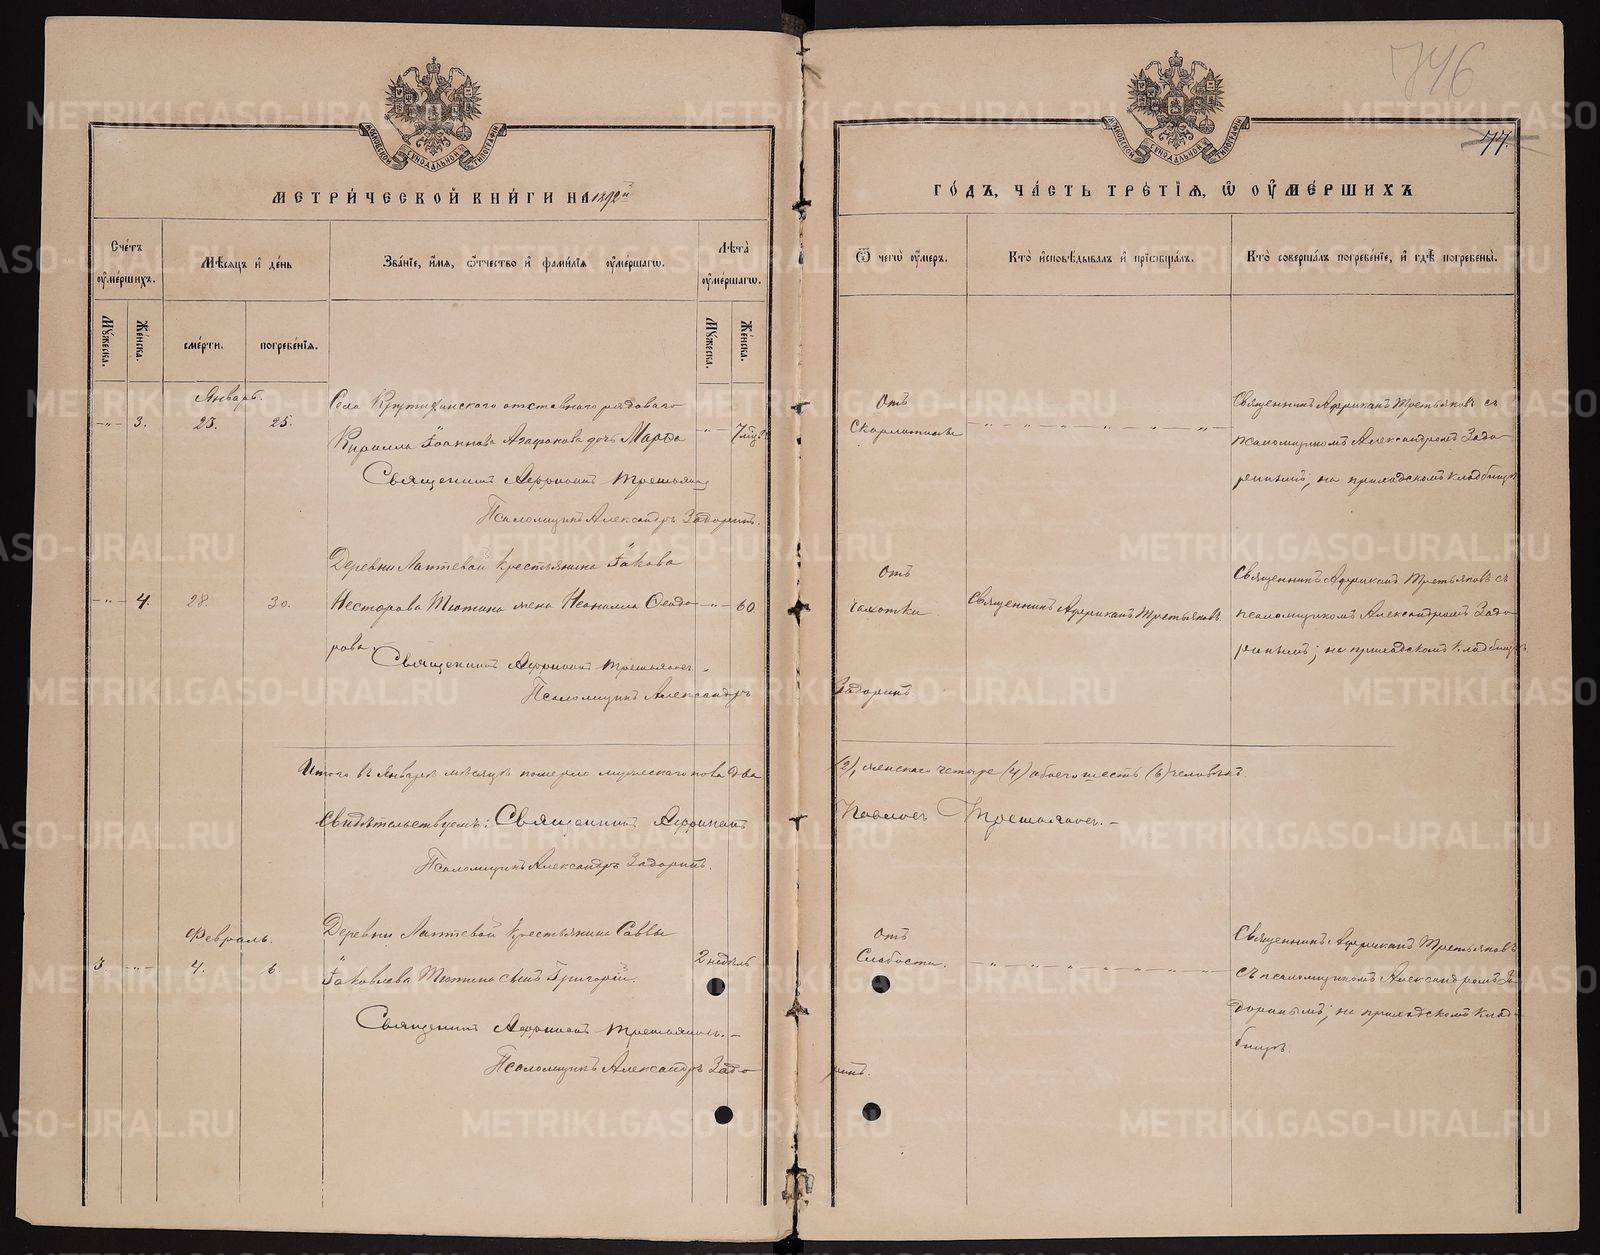 746
77.
МЕТРИЧЕСКОЙ КНИГИ НА 1892й
ГОДЪ, ЧАСТЬ ТРЕТІЯ, Ѡ ОУМЕРШИХЪ
Счетъ оумершихъ.
Мѣсяцъ и день
Званіе, имя, отчество и фамилія оумершагѡ.
Лѣта оумершагѡ.
Мужеска.
Женска.
смерти.
погребенія.
Мужеска.
Женска.
Ѿ чегѡ оумеръ.
Кто исповѣдывалъ и пріобщалъ.
Кто совершалъ погребеніе, и гдѣ погребены.
Январь.
3.
23.
25.
Села Крутихинскаго отставнаго рядоваго
Кирилла Іоаннова Агафонова дочь Марѳа
7 мѣс.
Священникъ Африканъ Третьяковъ
Псаломщикъ Александръ Задоринъ.
Отъ
Скарлатины
Священникъ Африканъ Третьяковъ съ
псаломщикомъ Александромъ Задо
ринымъ, на приходскомъ кладбищѣ
4.
28.
30.
Деревни Лаптевой крестьянина Іакова
Несторова Тютина жена Неонилла Ѳеодо
рова.
60
Священникъ Африканъ Третьяковъ.
Псаломщикъ Александръ
Задоринъ.
Отъ
чахотки
Священникъ Африканъ Третьяковъ.
Священникъ Африканъ Третьяковъ съ
псаломщикомъ Александромъ Задо
ринымъ; на приходскомъ кладбищѣ.
Итого въ Январѣ мѣсяцѣ померло мужескаго пола два
(2), женскаго четыре (4) обоего шесть (6) человѣкъ
Свидѣтельствуемъ: Священникъ Африканъ
Павловъ Третьяковъ.
Псаломщикъ Александръ Задоринъ.
Февраль.
3.
4.
6.
Деревни Лаптевой крестьянина Саввы
Іаковлева Тютина сынъ Григорій.
2 недѣль
Священникъ Африканъ Третьяковъ.
Псаломщикъ Александръ Задо
ринъ.
Отъ
Слабости.
Священникъ Африканъ Третьяковъ
съ псаломщикомъ Александромъ За
доринымъ; на приходскомъ клад
бищѣ.
METRIKI.GASO-URAL.RU